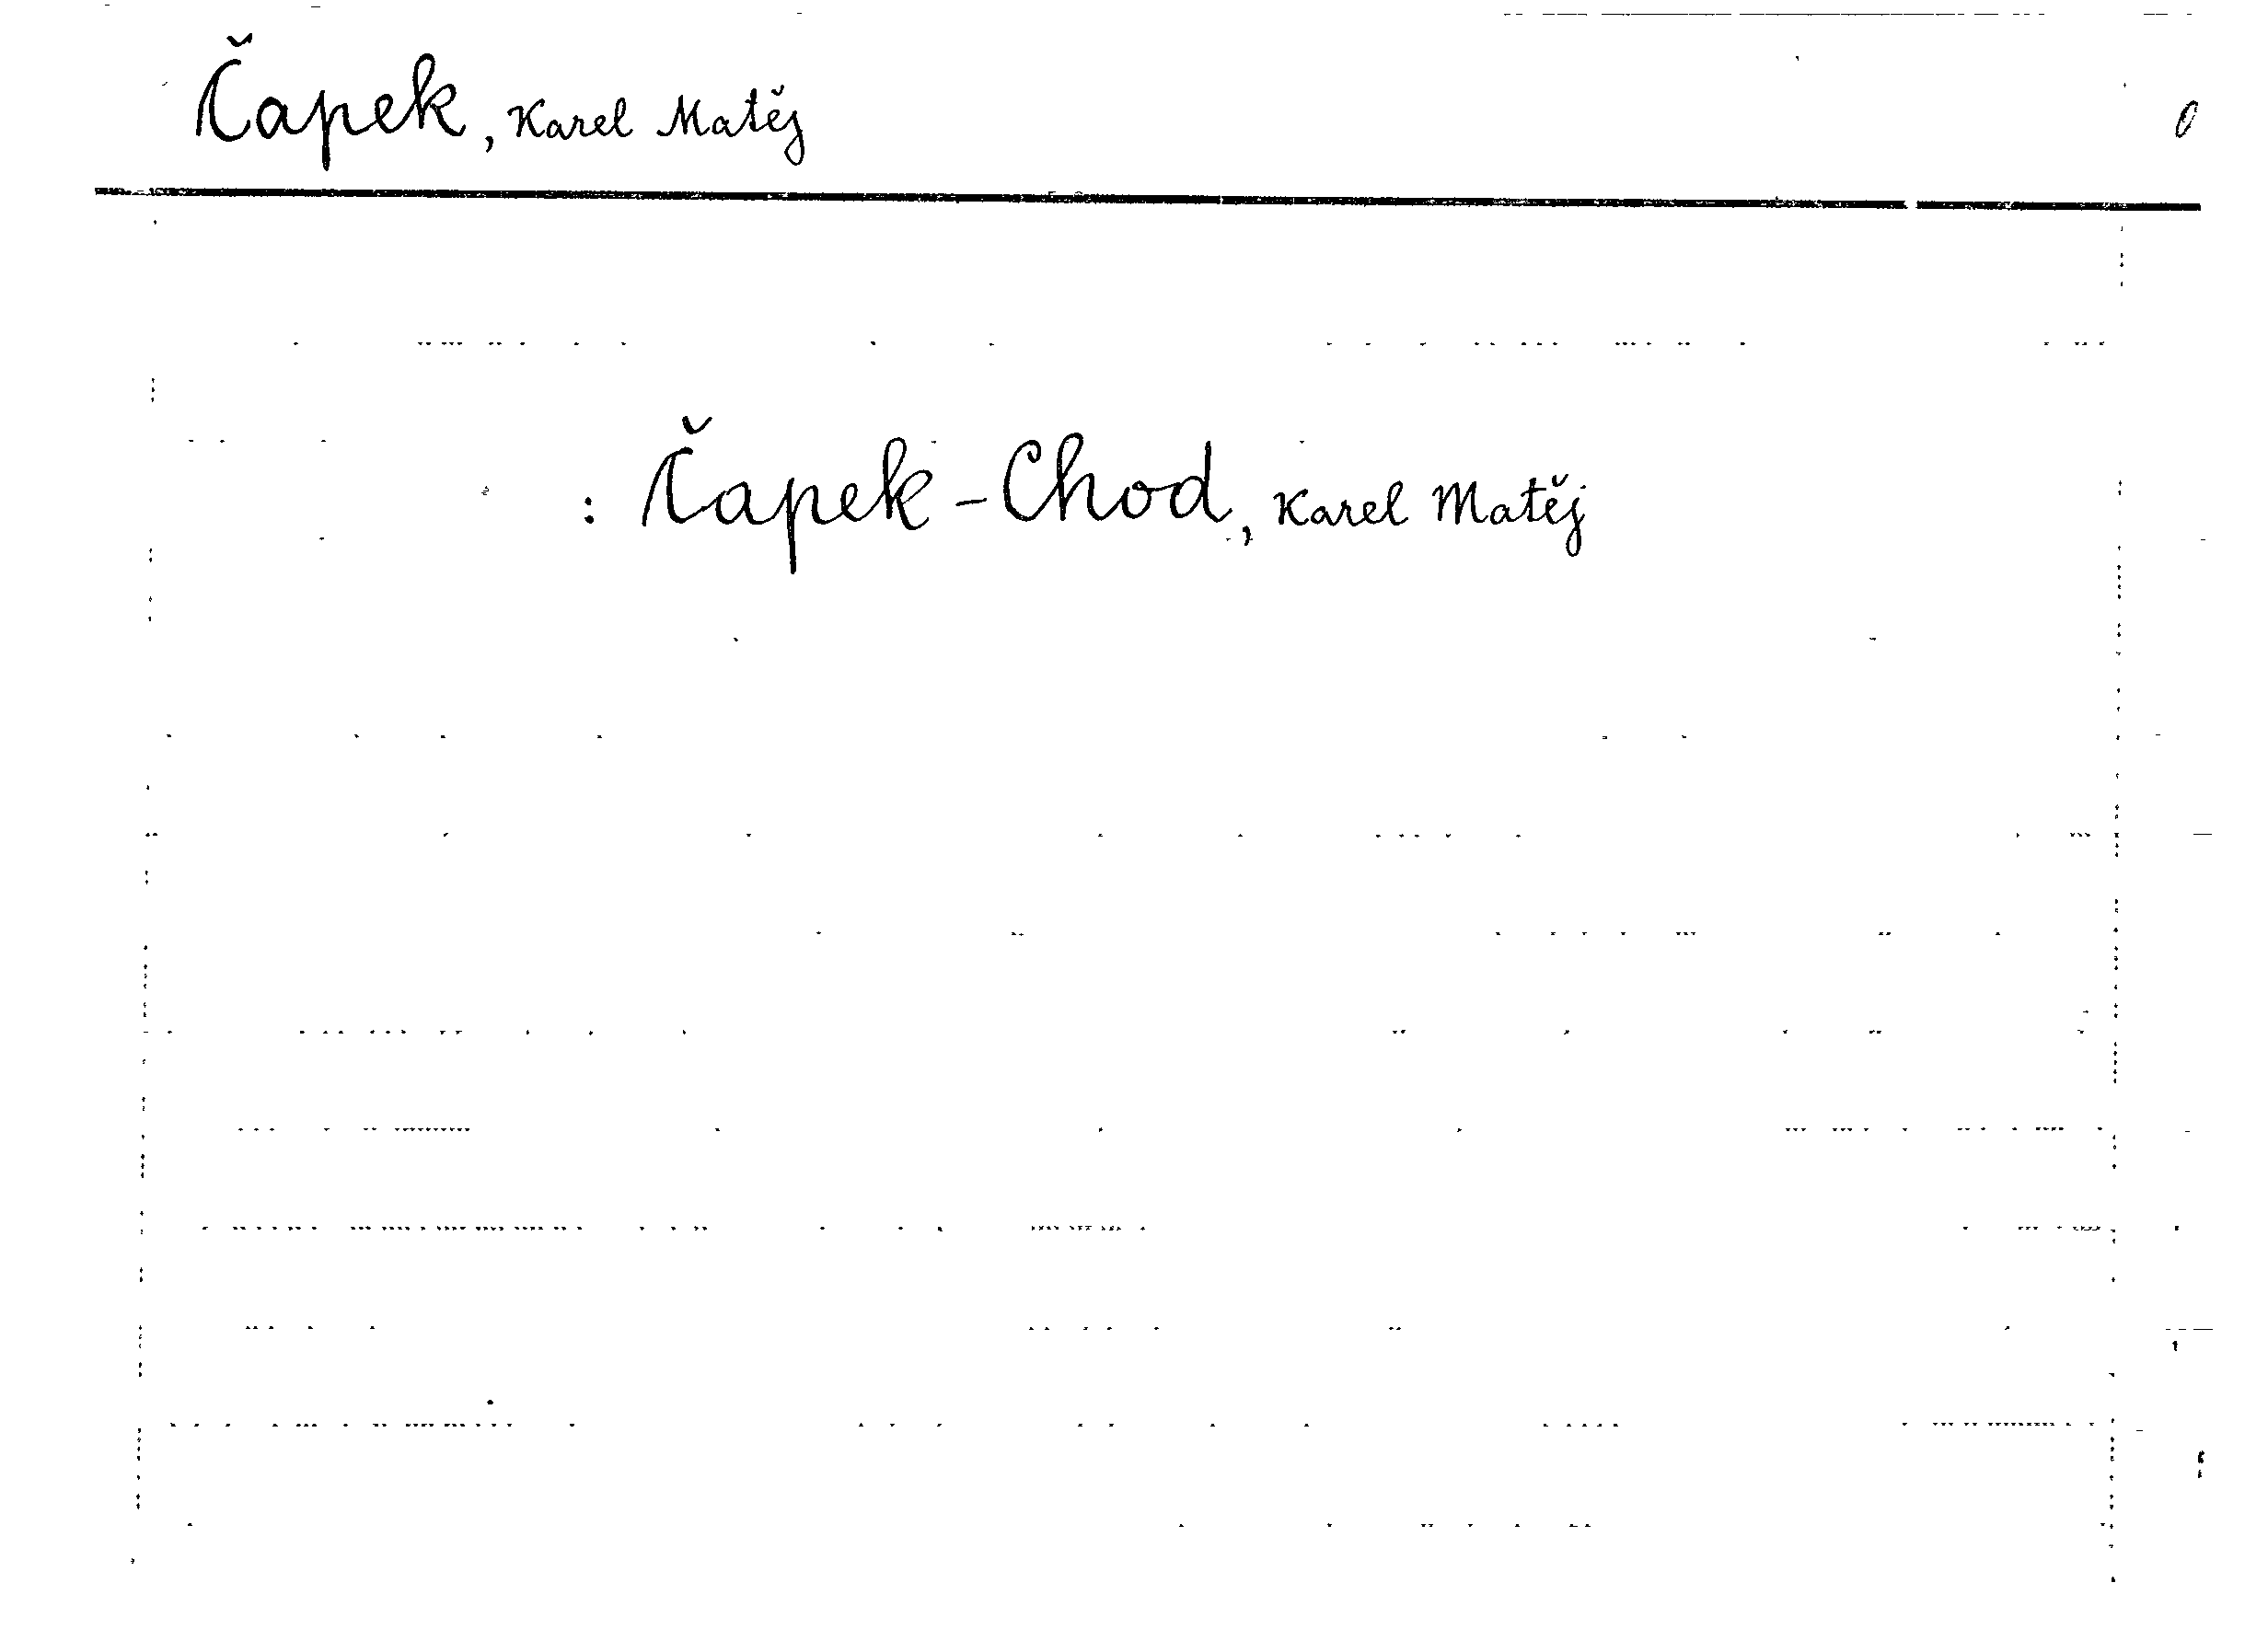 Čapek, Karel Matěj 0
: Čapek-Chod, Karel Matěj